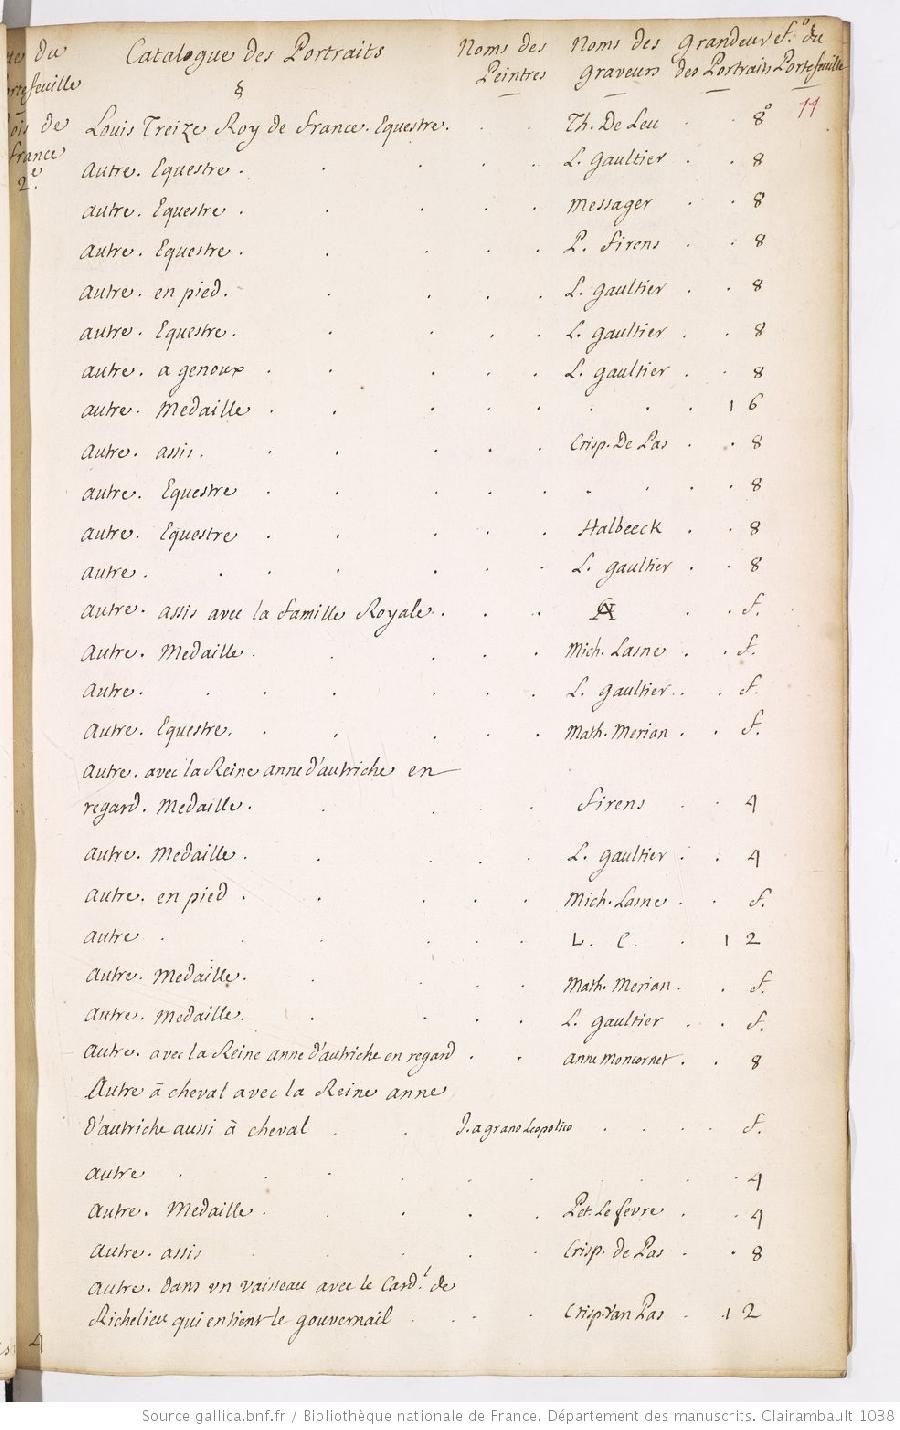 Catalogue des Portraits Noms des Noms des Grandeur f.º du
§ Peintres graveurs des Portraits Portefeuille
11
Louis Treize Roy de France. Equestre. Th. De Leu 8º
autre. Equestre. L. gaultier 8
autre. Equestre. Messager 8
autre. Equestre. P. firens 8
autre. en pied. L. gaultier 8
autre. Equestre. L. gaultier 8
autre. a genoux L. gaultier 8
autre. Medaille 16
autre. assis. Crisp. De Pas 8
autre. Equestre 8
autre. Equestre Halbeeck 8
autre. L. gaultier 8
autre. assis avec la famille Royale. f.
autre. Medaille Mich. Lasne f.
autre. L. gaultier f.
autre. Equestre. Math. Merian f.
autre. avec la Reine anne d'autriche en
regard. Medaille. firens 4
autre. Medaille. L. gaultier 4
autre. en pied Mich. Lasne f.
autre L. C. 12
autre. Medaille. Math. Merian f.
autre. Medaille L. gaultier f.
autre. avec la Reine anne d'autriche en regard anne moncornet 8
Autre à cheval avec la Reine anne
d'autriche aussi à cheval f.
autre 4
autre. Medaille Pet. Le fevre 4
autre. assis Crisp. de Pas 8
autre. dans un vaisseau avec le Card.l de
Richelieu qui en tient le gouvernail Crisp Van Pas 12
4
Source gallica.bnf.fr / Bibliothèque nationale de France. Département des manuscrits. Clairambault 1038